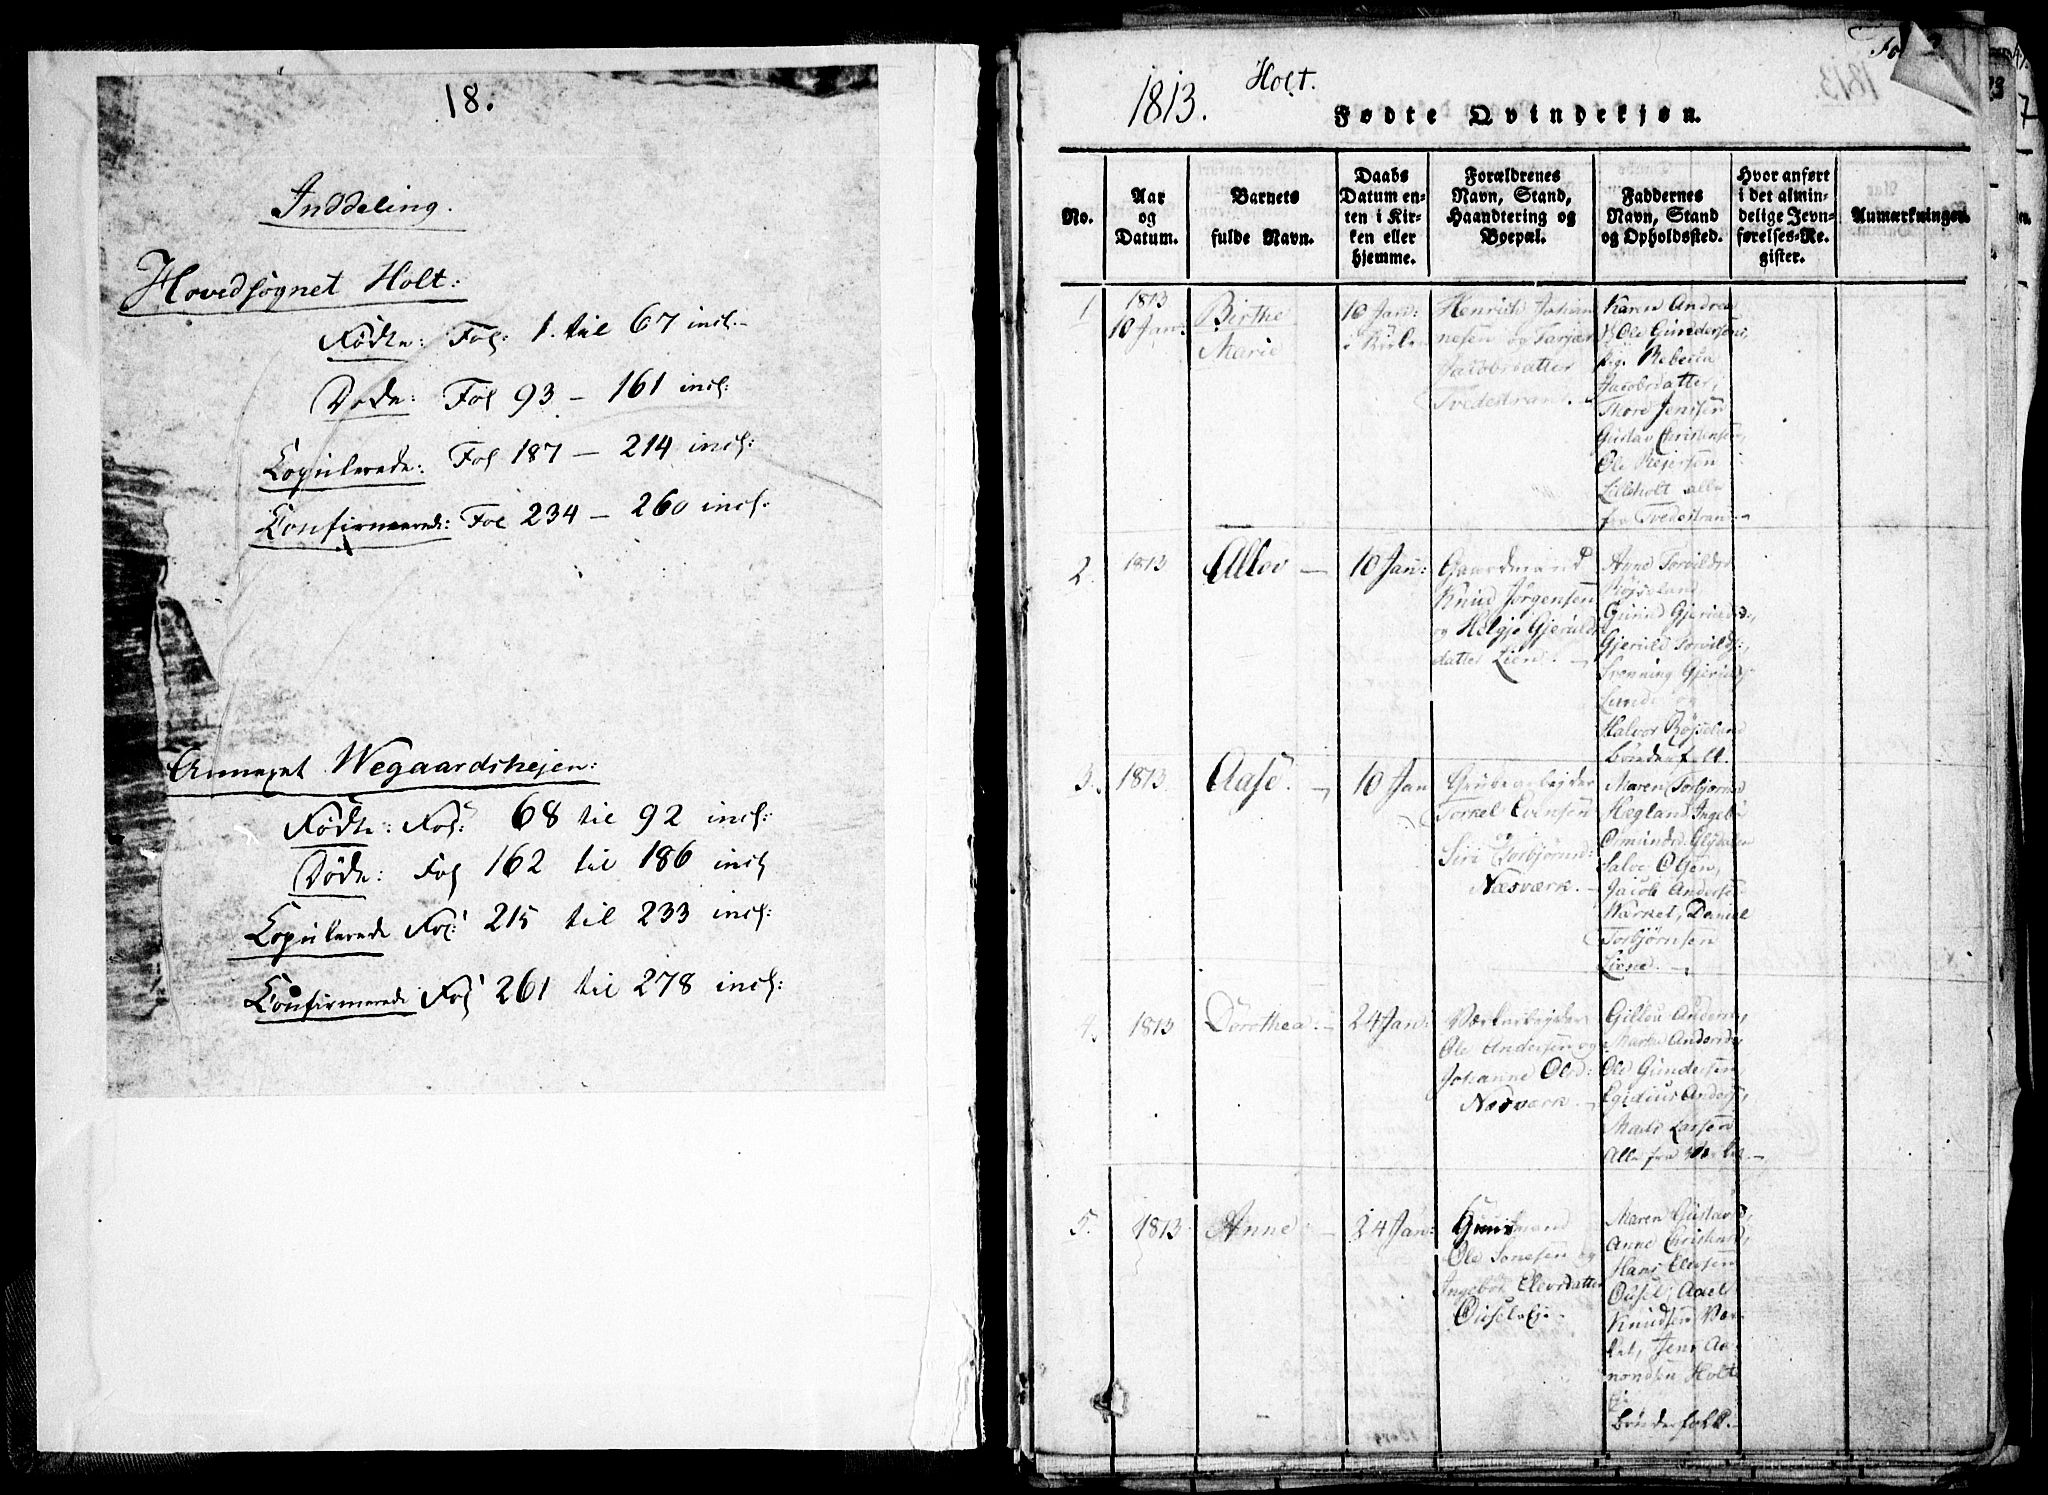 18.
Inddeling.
Hovedsognet Holt:
Fødte: Fol: 1. til 67 incl.
Døde: Fol 93 — 161 incl:
Copulerede: Fol 187 — 214 incl:
Confirmerede: Fol 234 — 260 incl.
Annexet Wegaardsheien:
Fødte: Fol: 68 til 92 incl:
Døde: Fol 162 til 186 incl
Copulerede Fol: 215 til 233 incl:
Confirmerede Fol 261 til 278 incl:
Fol
1813. Holt.
Fødte Qvindekjøn.
No.
Aar
og
Datum.
Barnets
fulde Navn.
Daabs
Datum en-
ten i Kir-
ken eller
hjemme.
Forældrenes
Navn, Stand,
Haandtering og
Boepæl.
Faddernes
Navn, Stand
og Opholdssted.
Hvor anført
i det almin-
delige Jevn-
førelses-Re-
gister.
Anmærkninger.
1
1813
10 Jan:
Birthe
Marie
10 Jan:
i Kirken
Henrich Johan
nesen og Tarjær
Jacobsdatter
Tvedestrand.
Karen Andrea
Ole Gundersens,
pig. Rebecca
Jacobsdatter,
Thore Jensen
Gustav Christensen,
Ole Rejersen
Lilleholt alle
fra Tvedestrand
2.
1813
Allov —
10 Jan:
Gaardmand
Knud Jørgensen
og Helgje Gjerulds
datter Liene. —
Anne Torvilds
Røjseland
Gunild Gjerulds:,
Gjeruld Torvilds:,
Svenning Gjerulds
Lunde
Halvor Røjseland
Bønderfolk.
3.
1813
Aase. —
10 Jan
Grubearbejder
Torkel Evensen
og
Siri Torbjørnsd:
Næsværk. —
Maren Torbjørnsd
Hægland, Ingebor
Osmundsd
Salve Olsen,
Jacob Andersen
Værket, Daniel
Torbjørnsen
Liene. —
4.
1813
Dorothea. —
24 Jan:
Værksarbejder
Ole Andersen og
Johanne Olsd:
Næsværk —
Anders,
Marthe Andersd,
Ole Gundersen
Egidius Anders,
Larsen
Alle fra Værket. —
5.
1813
Anne —
24 Jan:
Huusmand
Ole Tonesen og
Ingebor Elevsdatter
Maren Gustavsd,
Anne Christensd,
Hans Elevsen
Axel
Knudsen Vær-
ket, Jens Aa-
nondsen Holt
Ej.
Bønderfolk. —